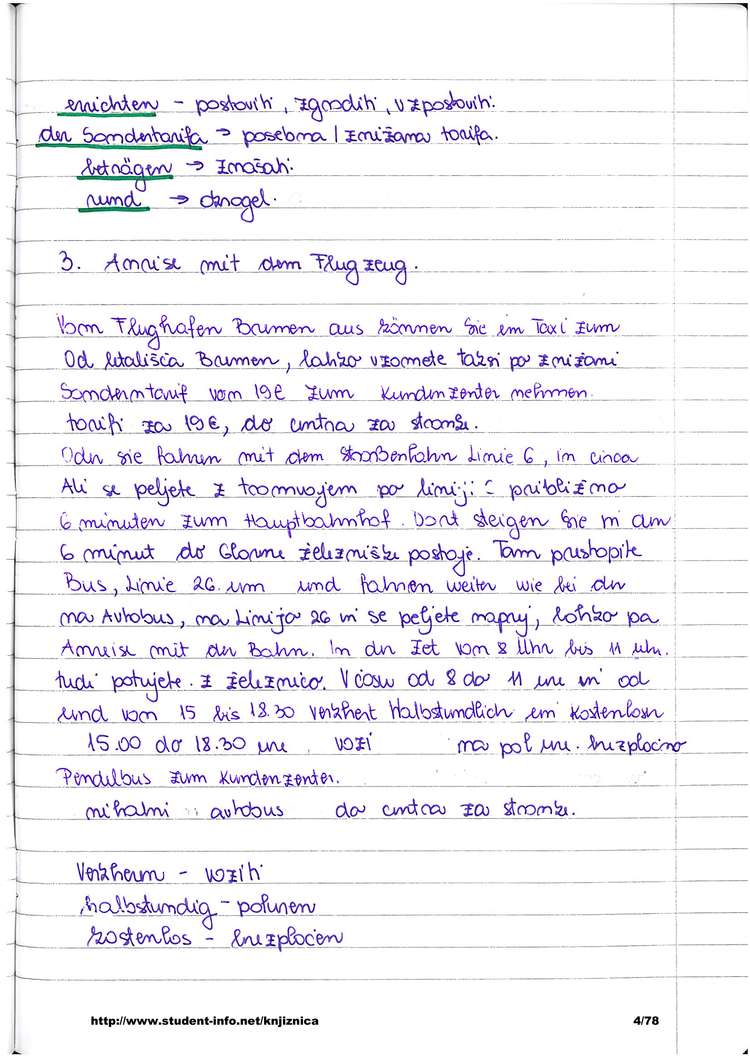 errichten - postaviti, zgraditi, vzpostaviti.
der Sondertarifa → posebna / znižana tarifa.
beträgen → znašati.
rund → okrogel.
3. Anreise mit dem Flugzeug.
Vom Flughafen Bremen aus können Sie ein Taxi zum
Od letališča Bremen, lahko vzamete taksi po znižani
Sonderntarif von 19€ zum Kundenzenter nehmen.
tarifi za 19€, do centra za stranke.
Oder sie fahren mit dem Straßenbahn Linie 6, in circa
Ali se peljete z tramvajem po liniji: približno
6 minuten zum Hauptbahnhof. Dort steigen Sie in am
6 minut do Glavne železniške postaje. Tam prestopite
Bus, Linie 26. um und fahren weiter wie bei der
na Avtobus, na Linijo 26 in se peljete naprej, lahko pa
Anreise mit der Bahn. In der Zet von 8 Uhr bis 11 uhr.
tudi potujete. z železnico. V času od 8 do 11 ure in od
und von 15 bis 18.30 verkhert Halbstundlich ein Kostenlosen
15.00 do 18.30 ure vozi na pol ure. brezplačno
Pendelbus zum Kundenzenter.
nihalni avtobus do centra za stranke.
Verkheren - voziti
halbstundig - poluren
kostenlos - brezplačen
http://www.student-info.net/knjiznica 4/78